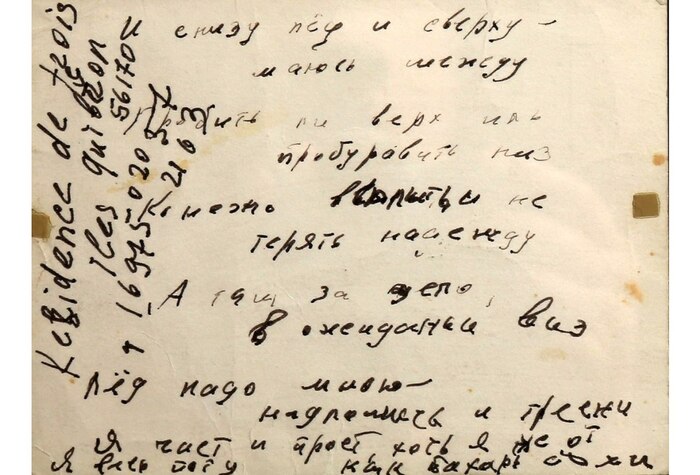 И снизу лёд и сверху –
маюсь между
Пробить ли верх иль
пробуравить низ
Конечно всплыть и не
терять надежду
А там за дело
в ожиданьи виз
Лёд надо мною –
надломись и тресни
я чист и прост хоть я не от сохи
Я весь в поту как пахарь
Residence de trois
Iles
56170
+ 16975-020
2163